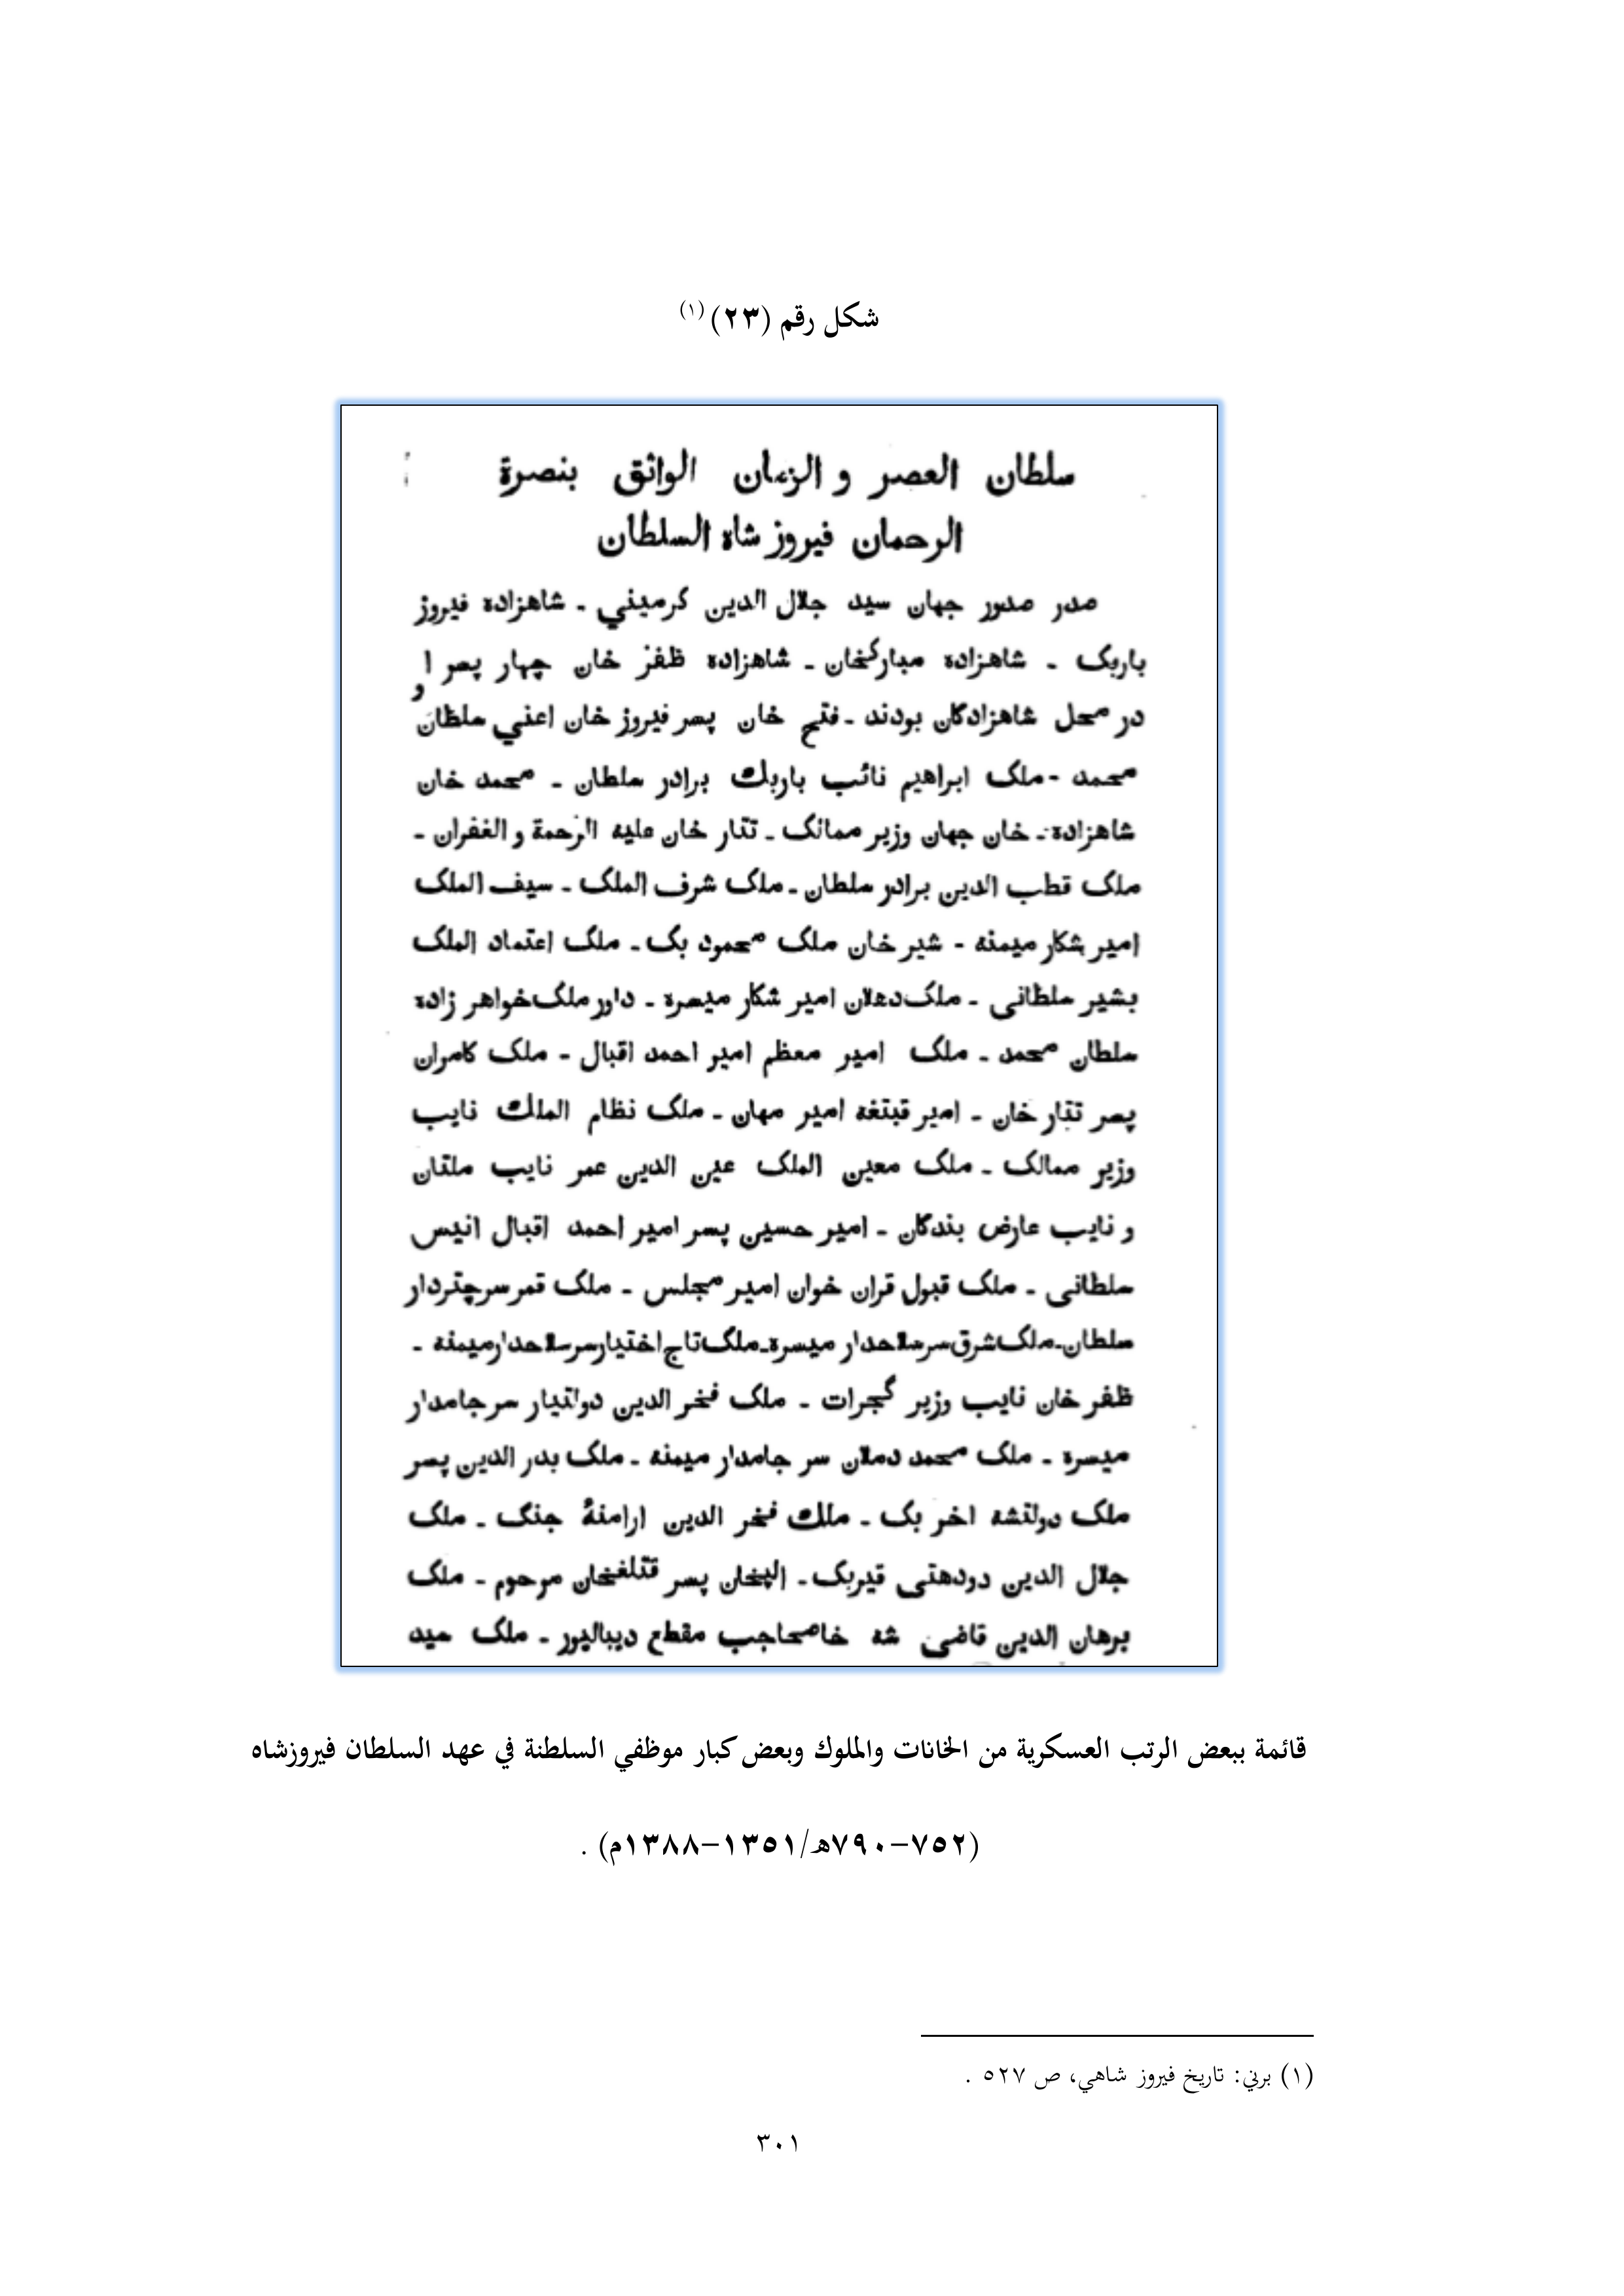 شكل رقم (٢٣) (١)
سلطان العصر و الزمان الواثق بنصرة
الرحمان فيروز شاه السلطان
صدر صدور جهان سيد جلال الدين كرميني ـ شاهزاده فيروز
باربک ـ شاهزاده مبارکخان ـ شاهزاده ظفر خان چهار پسر ا
و
در محل شاهزادگان بودند ـ فتح خان پسر فيروز خان اعني سلطان
محمد ـ ملک ابراهيم نائب باربك برادر سلطان ـ محمد خان
شاهزاده ـ خان جهان وزير ممالک ـ تتار خان عليه الرحمة و الغفران ـ
ملک قطب الدين برادر سلطان ـ ملک شرف الملک ـ سيف الملک
امير شکار ميمنه ـ شير خان ملک محمود بک ـ ملک اعتماد الملک
بشير سلطانی ـ ملک دهلان امير شکار ميسره ـ داور ملک خواهر زاده
سلطان محمد ـ ملک امير معظم امير احمد اقبال ـ ملک کامران
پسر تتار خان ـ امير قبتغه امير مهان ـ ملک نظام الملك نايب
وزير ممالک ـ ملک معين الملک عين الدين عمر نايب ملتان
و نايب عارض بندگان ـ امير حسين پسر امير احمد اقبال انيس
سلطانی ـ ملک قبول قران خوان امير مجلس ـ ملک قمر سرچتردار
سلطان ـ ملک شرق سر سلاحدار ميسره ـ ملک تاج اختيار سر سلاحدار ميمنه ـ
ظفر خان نايب وزير گجرات ـ ملک فخر الدين دولتيار سر جامدار
ميسره ـ ملک محمد دملان سر جامدار ميمنه ـ ملک بدر الدين پسر
ملک دولتشه اخر بک ـ ملك فخر الدين ارامنهٔ جنگ ـ ملک
جلال الدين دودهتی قيربک ـ الپخان پسر قتلغخان مرحوم ـ ملک
برهان الدين قاضی شه خاصحاجب مقطع ديبالپور ـ ملک سيد
قائمة ببعض الرتب العسكرية من الخانات والملوك وبعض كبار موظفي السلطنة في عهد السلطان فيروزشاه
(٧٥٢–٧٩٠هـ/١٣٥١–١٣٨٨م) .
(١) برني: تاريخ فيروز شاهي، ص ٥٢٧ .
٣٠١